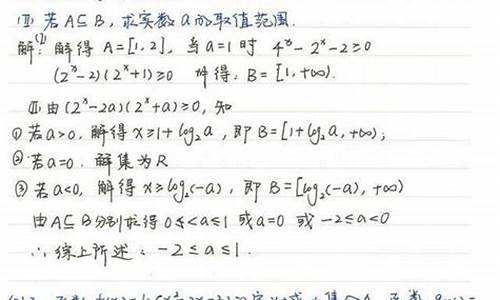 (Ⅱ) 若A⊆B,求实数a的取值范围.
解:(Ⅰ) 解得 A=[1,2],当a=1时 4ˣ-2ˣ-2≥0
(2ˣ-2)(2ˣ+1)≥0 解得:B=[1,+∞).
Ⅱ.由(2ˣ-2a)(2ˣ+a)≥0,知
①若a>0,解得x≥1+log₂a,即B=[1+log₂a,+∞);
②若a=0.解集为R
③若a<0,解得x≥log₂(-a),即B=[log₂(-a),+∞)
由A⊆B分别求得0≤<a≤1或a=0 或-2≤a<0
∴综上所述:-2≤a≤1.